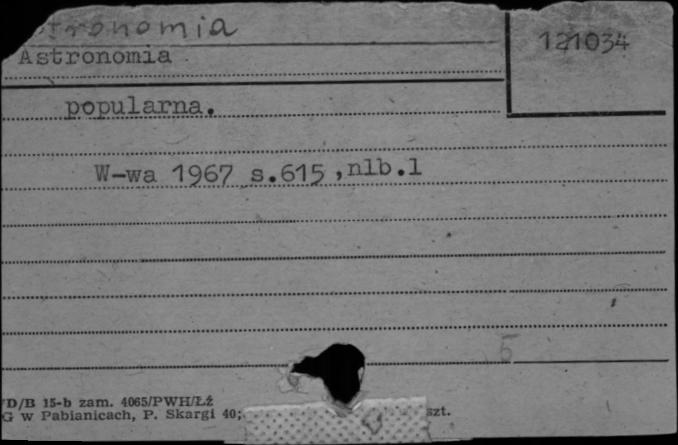 tronomia
121034
Astronomia
popularna.
W-wa 1967 s.615,nlb.1
5
D/B 15-b zam. 4065/PWH/Łź
G w Pabianicach, P. Skargi 40; szt.